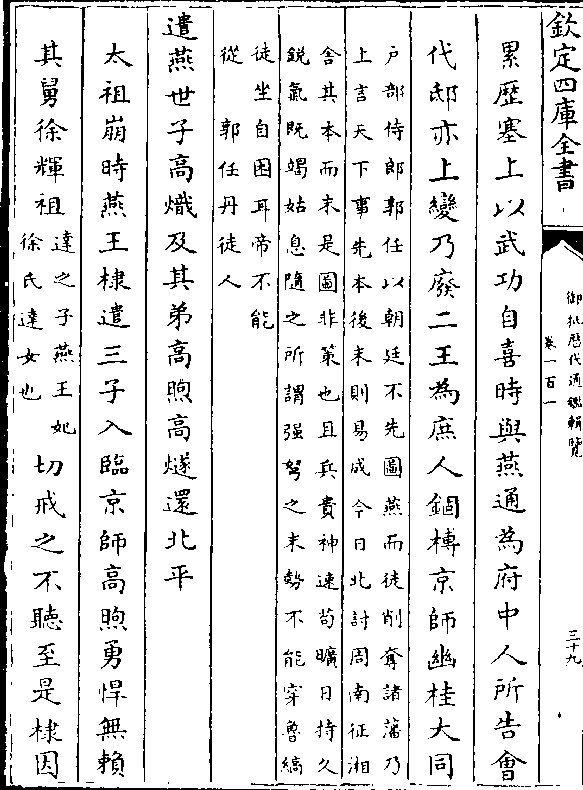 欽定四庫全書
御批歷代通鑑輯覽
卷一百一
三十九
累歴塞上以武功自喜時與燕通為府中人所告㑹
代邸亦上變乃廢二王為庶人錮榑京師幽桂大同
户部侍郎郭任以朝廷不先圖燕而徒削奪諸藩乃
上言天下事先本後末則易成今日北討周南征湘
舍其本而末是圖非策也且兵貴神速苟曠日持久
鋭氣既竭姑息隨之所謂强弩之末勢不能穿魯縞
徒坐自困耳帝不能
從　郭任丹徒人
遣燕世子高熾及其弟高煦高燧還北平
太祖崩時燕王棣遣三子入臨京師高煦勇悍無賴
其舅徐輝祖
達之子燕王妃
徐氏達女也
切戒之不聽至是棣因